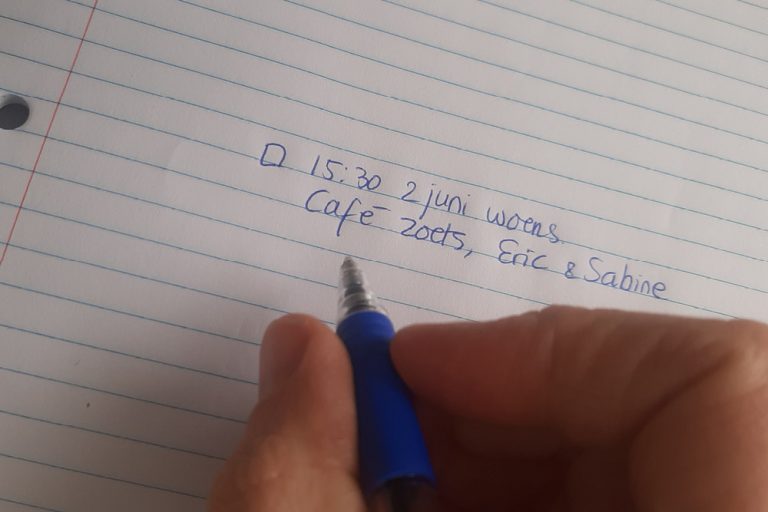 □ 15:30 2 juni woens.
Café zoets, Eric & Sabine